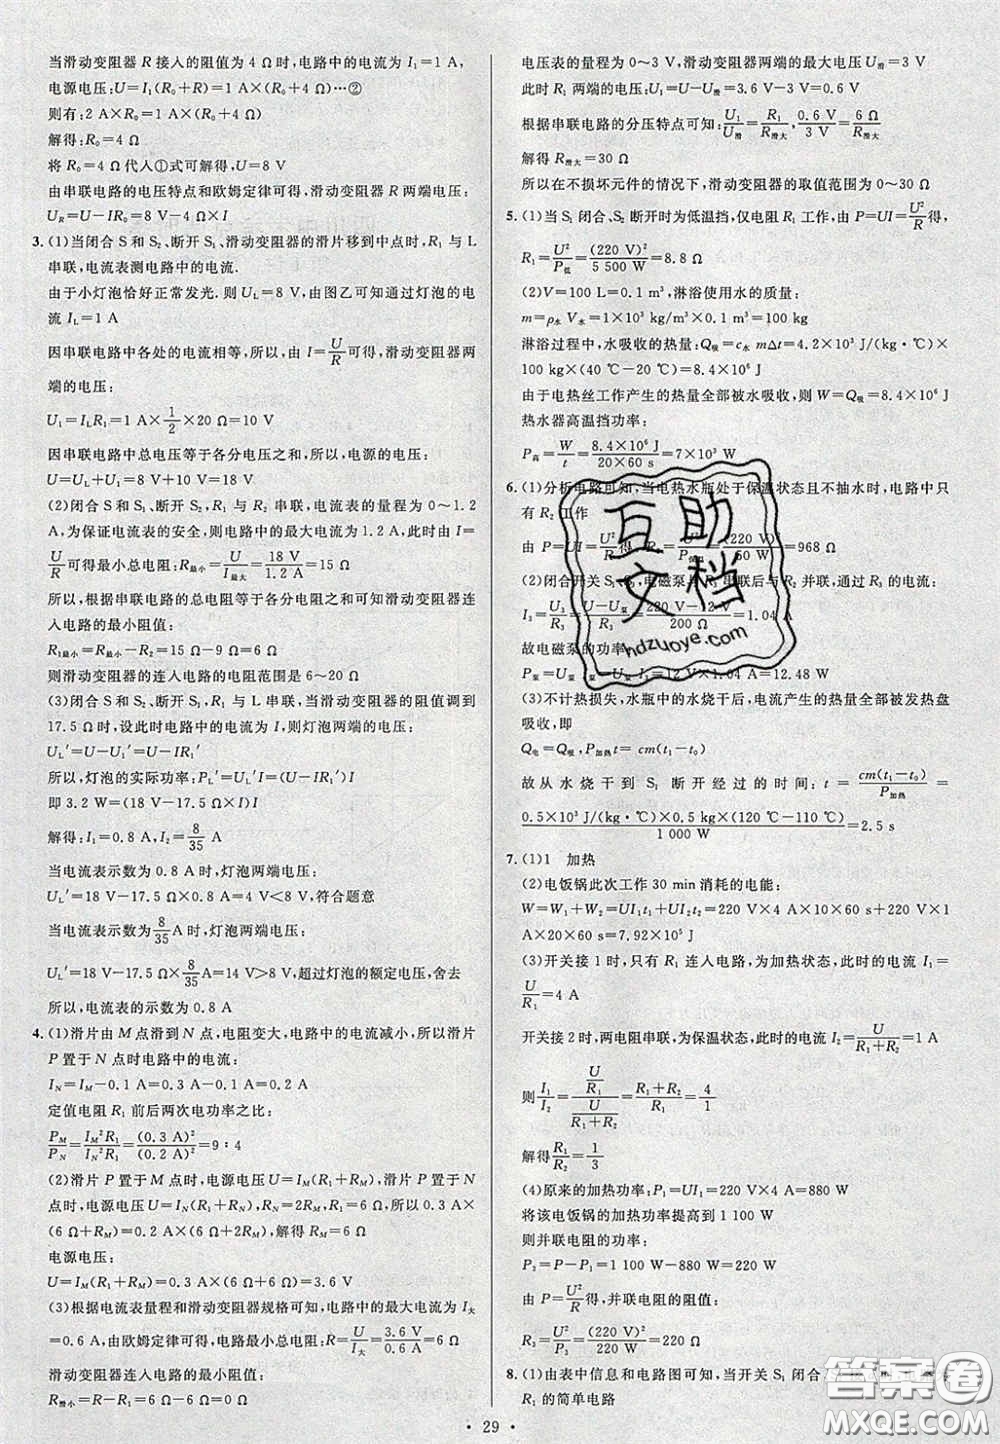 当滑动变阻器 R 接入的阻值为 4 Ω 时,电路中的电流为 I₁=1 A,
电源电压:U=I₁(R₀+R)=1 A×(R₀+4 Ω)…②
则有:2 A×R₀=1 A×(R₀+4 Ω)
解得:R₀=4 Ω
将 R₀=4 Ω代人①式可解得,U=8 V
由串联电路的电压特点和欧姆定律可得,滑动变阻器 R 两端电压:
U_R=U-IR₀=8 V-4 Ω×I
3. (1)当闭合 S 和 S₂、断开 S₁、滑动变阻器的滑片移到中点时,R₁ 与 L
串联,电流表测电路中的电流.
由于小灯泡恰好正常发光.则 U_L=8 V,由图乙可知通过灯泡的电
流 I_L=1 A
因串联电路中各处的电流相等,所以,由 I=U/R 可得,滑动变阻器两
端的电压:
U₁=I_LR₁=1 A×1/2×20 Ω=10 V
因串联电路中总电压等于各分电压之和,所以,电源的电压:
U=U_L+U₁=8 V+10 V=18 V
(2)闭合 S 和 S₁、断开 S₂,R₁ 与 R₂ 串联,电流表的量程为 0~1.2
A,为保证电流表的安全,则电路中的最大电流为 1.2 A,此时由 I=
U/R 可得最小总电阻:R最小=U/I最大=18 V/1.2 A=15 Ω
所以,根据串联电路的总电阻等于各分电阻之和可得,滑动变阻器连
入电路的最小阻值:
R₁最小=R最小-R₂=15 Ω-9 Ω=6 Ω
则滑动变阻器的连入电路的电阻范围是 6~20 Ω
(3)闭合 S 和 S₂、断开 S₁,R₁ 与 L 串联,滑动变阻器的阻值调到
17.5 Ω时,设此时电路中的电流为 I,则灯泡两端的电压:
U_L′=U-U₁′=U-IR₁′
所以,灯泡的实际功率:P_L′=U_L′I=(U-IR₁′)I
即 3.2 W=(18 V-17.5 Ω×I)I
解得:I₁=0.8 A,I₂=8/35 A
当电流表示数为 0.8 A 时,灯泡两端电压:
U_L′=18 V-17.5 Ω×0.8 A=4 V<8 V,符合题意
当电流表示数为 8/35 A时,灯泡两端电压:
U_L′=18 V-17.5 Ω×8/35 A=14 V>8 V,超过灯泡的额定电压,舍去
所以,电流表的示数为 0.8 A
4. (1)滑片由 M 点滑到 N 点,电阻变大,电路中的电流减小,所以滑片
P 置于 N 点时电路中的电流:
I_N=I_M-0.1 A=0.3 A-0.1 A=0.2 A
定值电阻 R₁ 前后两次电功率之比:
P_M/P_N=I_M²R₁/I_N²R₁=(0.3 A)²/(0.2 A)²=9:4
(2)滑片 P 置于 M 点时,电源电压 U=I_M(R₁+R_M),滑片 P 置于 N
点时,电源电压 U=I_N(R₁+R_N),R_N=10 Ω,R₁=6 Ω,所以 0.3 A×
(6 Ω+R_M)=0.2 A×(6 Ω+10 Ω),解得 R_M=6 Ω
电源电压:
U=I_M(R₁+R_M)=0.3 A×(6 Ω+6 Ω)=3.6 V
(3)根据电流表量程和滑动变阻器规格可知,电路中的最大电流为 I大
=0.6 A,由欧姆定律可得,电路最小总电阻:R=U/I大=3.6 V/0.6 A=6 Ω
滑动变阻器连入电路的最小阻值:
R滑小=R-R₁=6 Ω-6 Ω=0 Ω
电压表的量程为 0~3 V,滑动变阻器两端的最大电压 U滑=3 V
此时 R₁ 两端的电压:U₁=U-U滑=3.6 V-3 V=0.6 V
根据串联电路的分压特点可知:U₁/U滑=R₁/R滑大,0.6 V/3 V=6 Ω/R滑大
解得 R滑大=30 Ω
所以在不损坏元件的情况下,滑动变阻器的取值范围为 0~30 Ω
5. (1)当 S₁ 闭合、S₂ 断开时为低温挡,仅电阻 R₁ 工作,由 P=UI=U²/R得,
R₁=U²/P低=(220 V)²/5 500 W=8.8 Ω
(2)V=100 L=0.1 m³,淋浴使用水的质量:
m=ρ水 V水=1×10³ kg/m³×0.1 m³=100 kg
淋浴过程中,水吸收的热量:Q吸=c水 mΔt=4.2×10³ J/(kg·℃)×
100 kg×(40 ℃-20 ℃)=8.4×10⁶ J
由于电热丝工作产生的热量全部被水吸收,则 W=Q吸=8.4×10⁶ J
热水器高温挡功率:
P高=W/t=8.4×10⁶ J/20×60 s=7×10³ W
6. (1)分析电路可知,当电热水瓶处于保温状态且不抽水时,电路中只
有 R₂ 工作
由 P=UI=U²/R得 R₂=U²/P保温=(220 V)²/50 W=968 Ω
(2)闭合开关 S₁、S₂,电磁泵与 R₃ 串联后与 R₂ 并联,通过 R₃ 的电流:
I₃=U₃/R₃=U-U泵/R₃=220 V-12 V/200 Ω=1.04 A
故电磁泵的功率:
P泵=U泵 I泵=U泵 I₃=12 V×1.04 A=12.48 W
(3)不计热损失,水瓶中的水烧干后,电流产生的热量全部被发热盘
吸收,即
Q电=Q吸,P加热t=cm(t₁-t₀)
故从水烧干到 S₁ 断开经过的时间:t=cm(t₁-t₀)/P加热=
0.5×10³ J/(kg·℃)×0.5 kg×(120 ℃-110 ℃)/1 000 W=2.5 s
7. (1)1 加热
(2)电饭锅此次工作 30 min 消耗的电能:
W=W₁+W₂=UI₁t₁+UI₂t₂=220 V×4 A×10×60 s+220 V×1
A×20×60 s=7.92×10⁵ J
(3)开关接 1 时,只有 R₁ 连入电路,为加热状态,此时的电流 I₁=
U/R₁=4 A
开关接 2 时,两电阻串联,为保温状态,此时的电流 I₂=U/R₁+R₂=1 A
则 I₁/I₂=(U/R₁)/(U/R₁+R₂)=R₁+R₂/R₁=4/1
解得R₁/R₂=1/3
(4)原来的加热功率:P₁=UI₁=220 V×4 A=880 W
将该电饭锅的加热功率提高到 1 100 W
则并联电阻的功率:
P₃=P-P₁=1 100 W-880 W=220 W
由 P=U²/R得,并联电阻的阻值:
R₃=U²/P₃=(220 V)²/220 W=220 Ω
8. (1)由表中信息和电路图可知,当开关 S₁ 闭合
R₁ 的简单电路
· 29 ·
互助文档
hdzuoye.com
答案圈
MXQE.COM